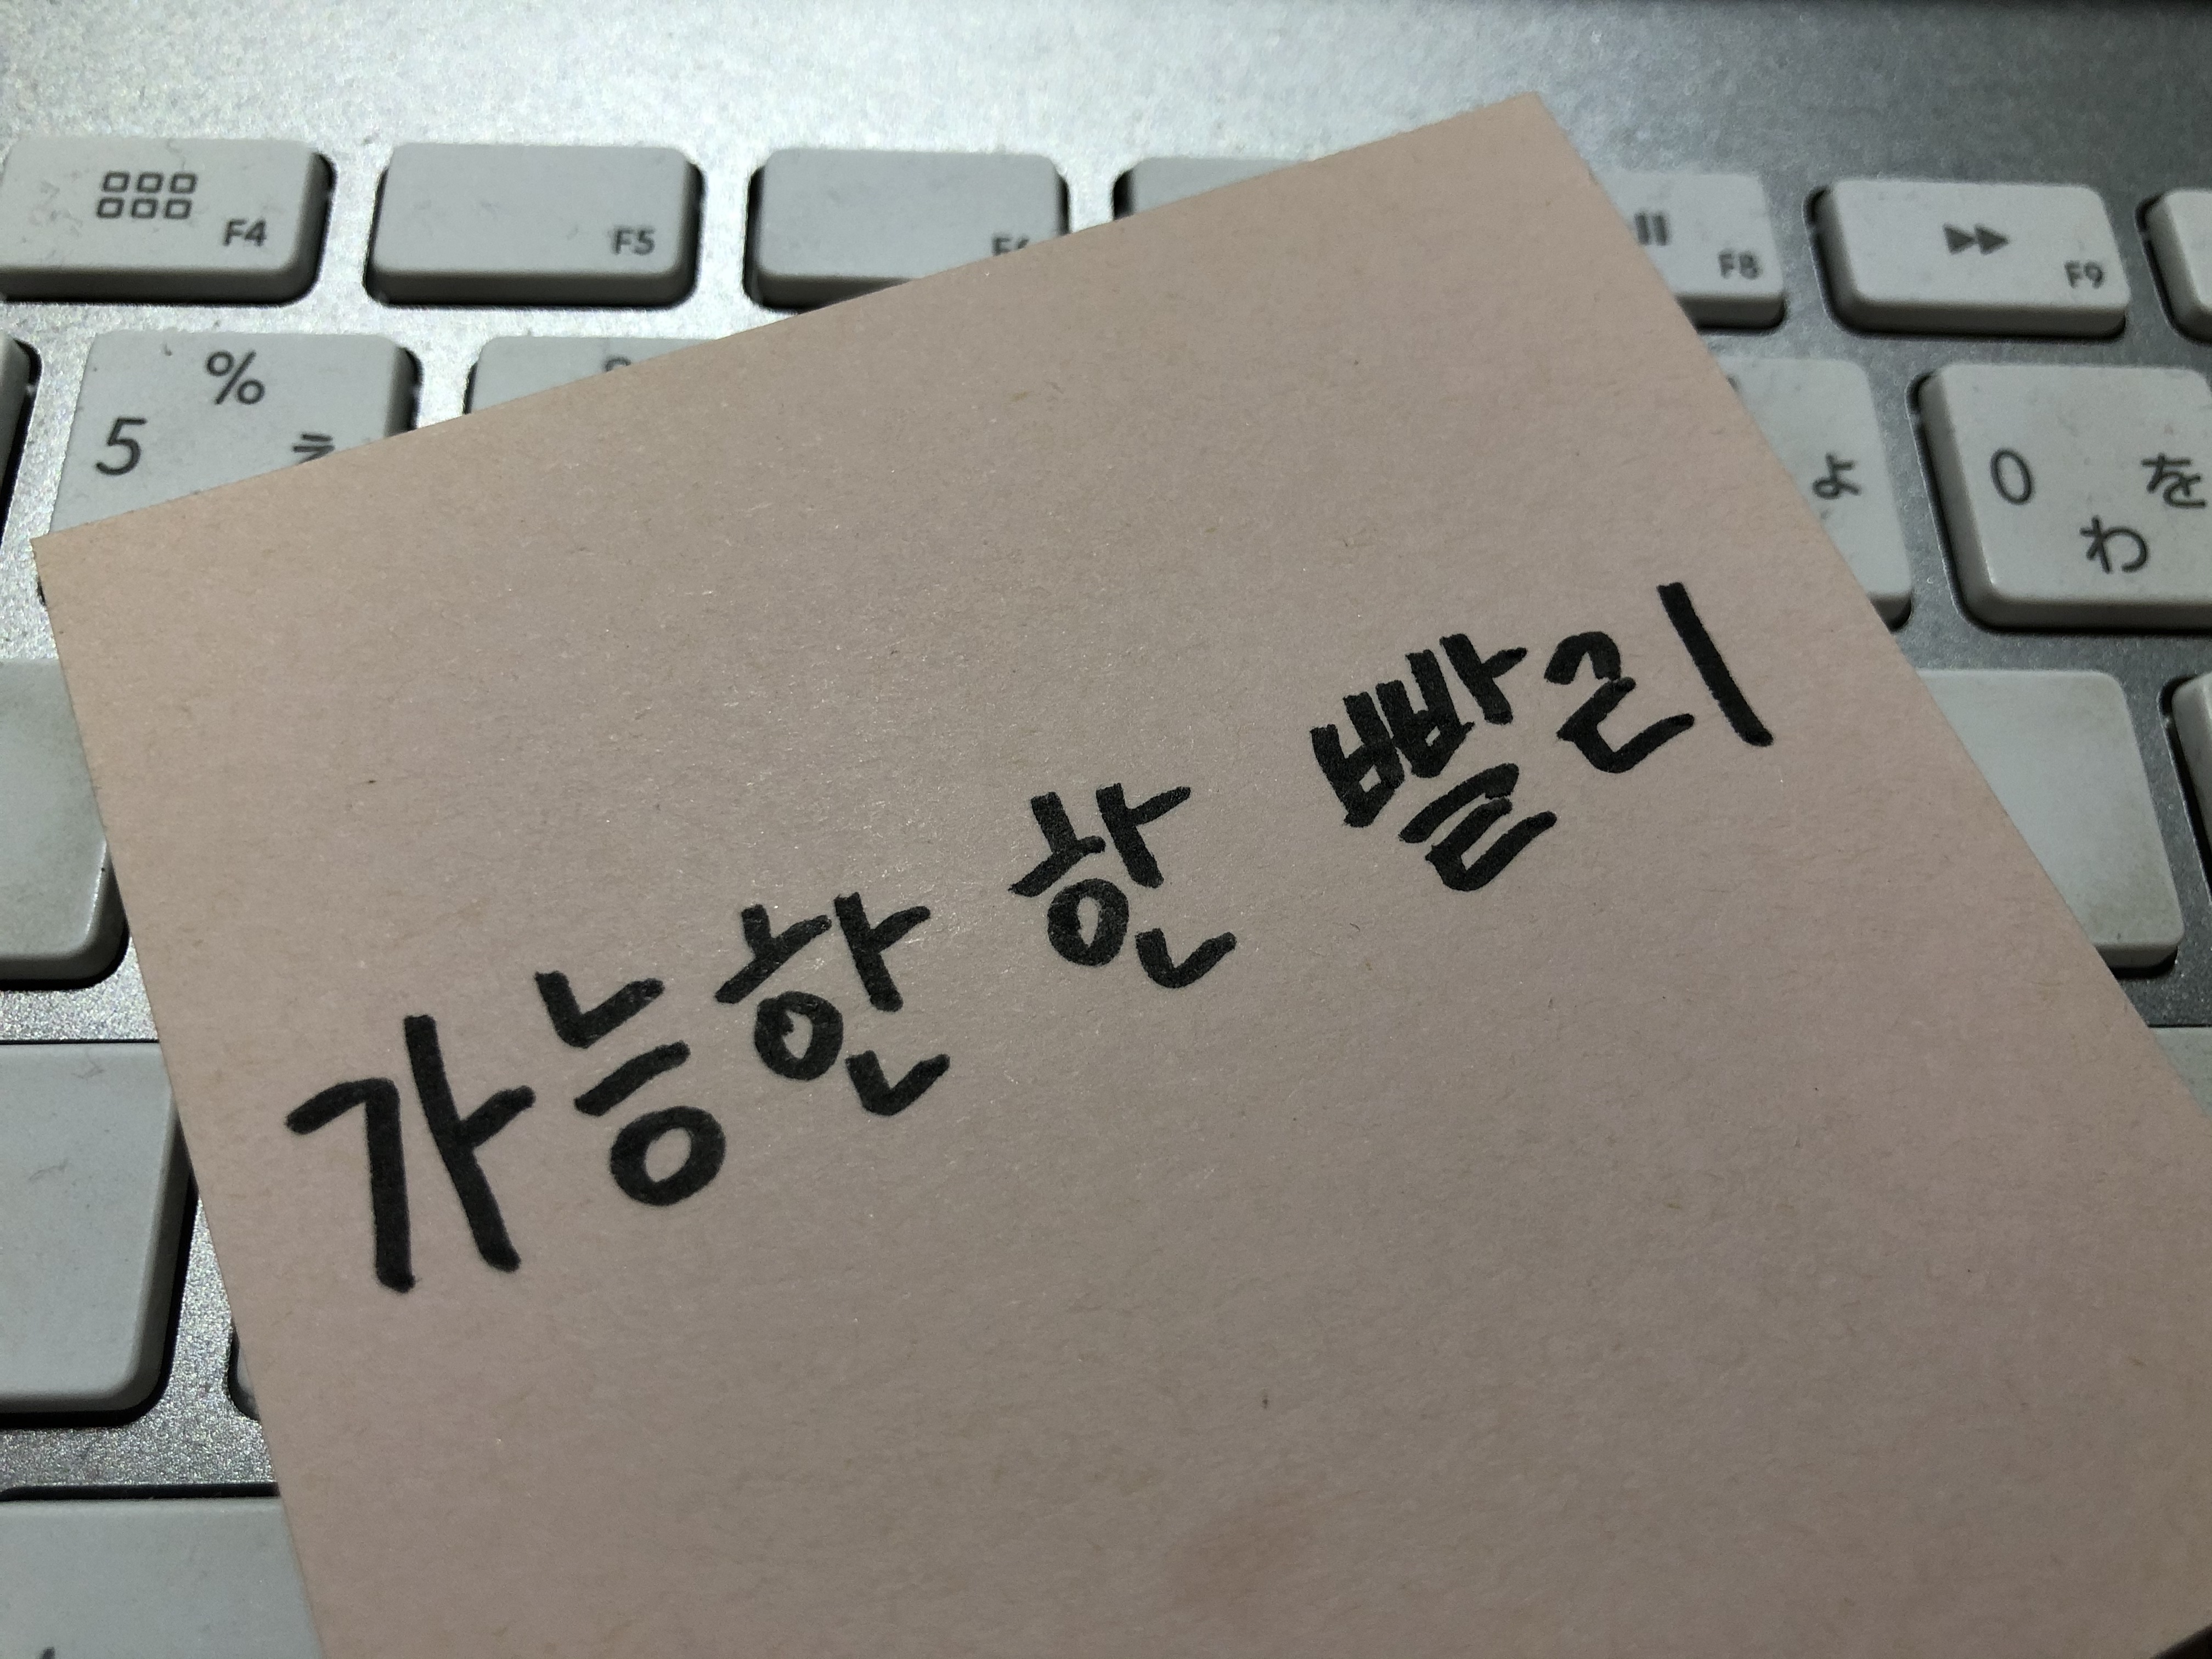 F4 F5 F8 F9
% 5 ょ 0 を わ
가능한 한 빨리